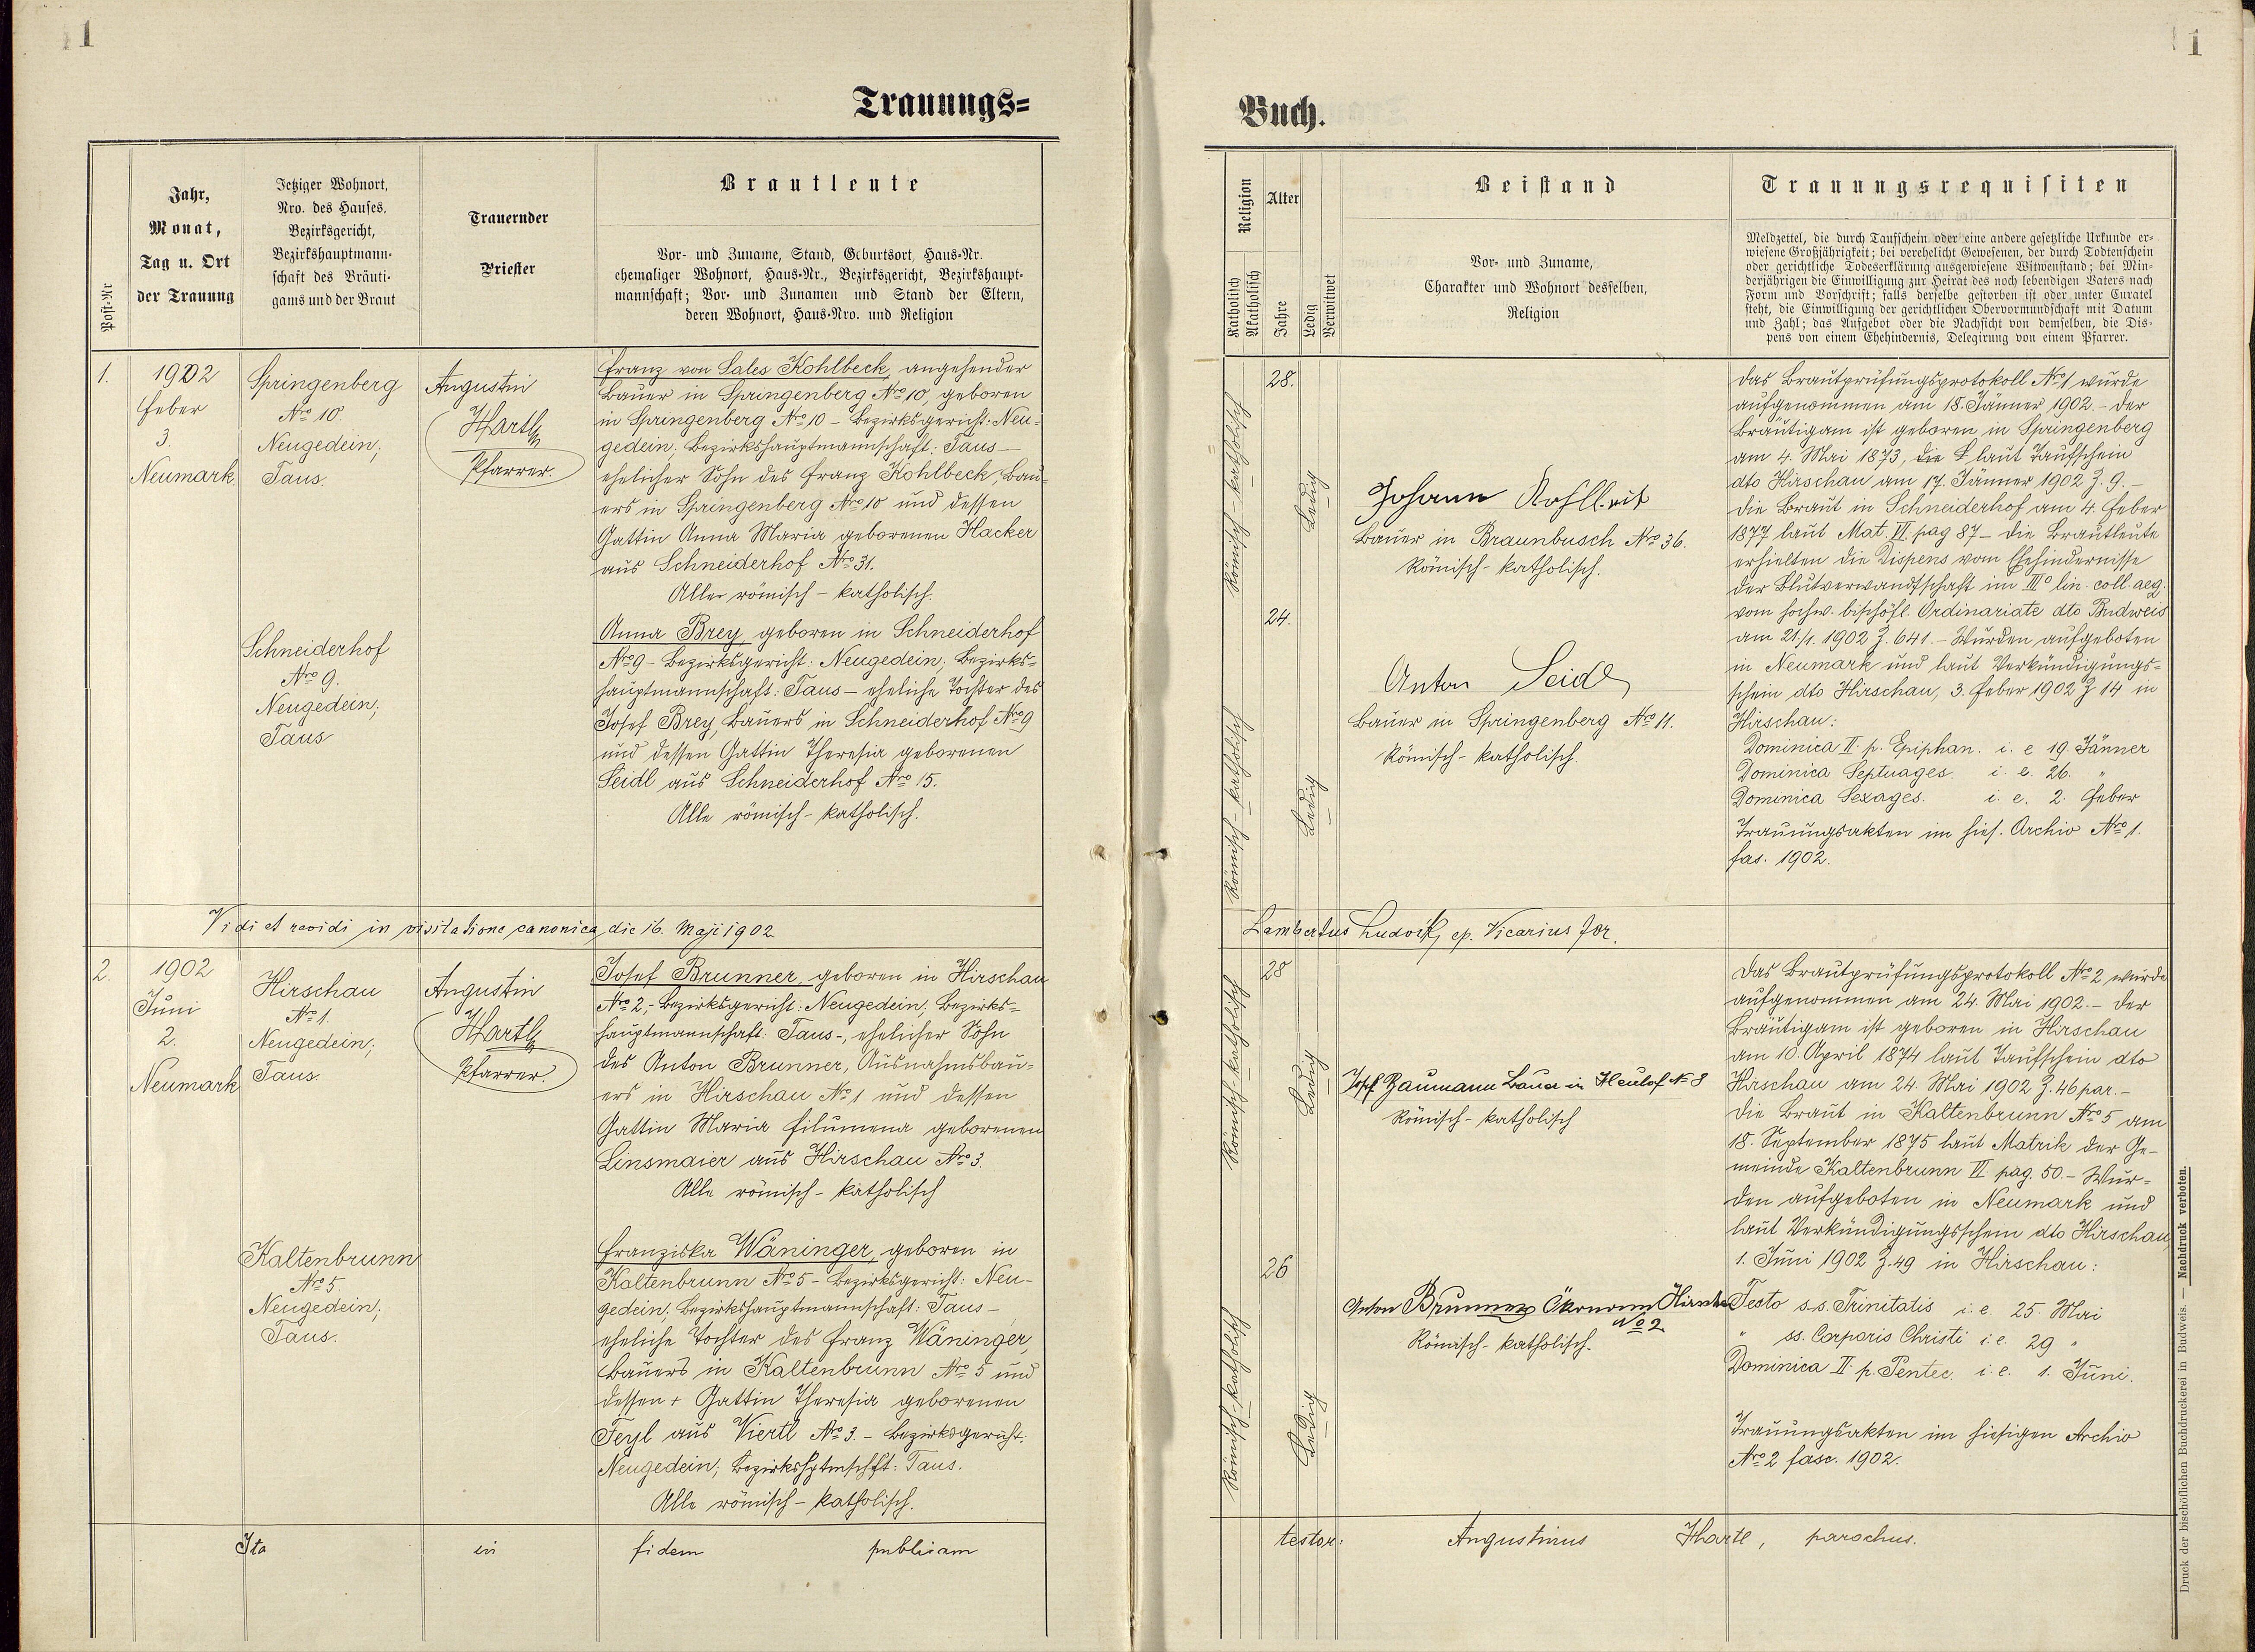 1
Trauungs=
Post-Nr
Jahr,
Monat,
Tag u. Ort
der Trauung
Jetziger Wohnort,
Nro. des Hauses,
Bezirksgericht,
Bezirkshauptmann-
schaft des Bräuti-
gams und der Braut
Trauernder
Priester
Brautleute
Vor- und Zuname, Stand, Geburtsort, Haus-Nr.
ehemaliger Wohnort, Haus-Nr., Bezirksgericht, Bezirkshaupt-
mannschaft; Vor- und Zunamen und Stand der Eltern,
deren Wohnort, Haus-Nro. und Religion
1.
1902
Feber
3.
Neumark
Springenberg
Nro 10.
Neugedein;
Taus.
Augustin
Hartl
Pfarrer.
Franz von Sales Kohlbeck, angehender
Bauer in Springenberg Nro 10, geboren
in Springenberg Nro 10 - Bezirksgericht: Neu-
gedein; Bezirkshauptmannschaft: Taus -
ehelicher Sohn des Franz Kohlbeck, Bau-
ers in Springenberg Nro 10 und dessen
Gattin Anna Maria geborenen Hacker
aus Schneiderhof Nro 31.
Alle römisch-katholisch.
Schneiderhof
Nro 9.
Neugedein;
Taus
Anna Brey, geboren in Schneiderhof
Nro 9 - Bezirksgericht: Neugedein; Bezirks=
hauptmannschaft: Taus - eheliche Tochter des
Josef Brey, Bauers in Schneiderhof Nro 9
und dessen Gattin Theresia geborenen
Seidl aus Schneiderhof Nro 15.
Alle römisch-katholisch.
Vidi et revidi in visitatione canonica, die 16. Maji 1902
2.
1902
Juni
2.
Neumark
Hirschau
Nro 1.
Neugedein;
Taus.
Augustin
Hartl
Pfarrer.
Josef Brunner, geboren in Hirschau
Nro 2,- Bezirksgericht: Neugedein; Bezirks=
hauptmannschaft: Taus-, ehelicher Sohn
des Anton Brunner, Ausnahmsbau-
ers in Hirschau Nro 1 und dessen
Gattin Maria Filumena geborenen
Linsmaier aus Hirschau Nro 3.
Alle römisch-katholisch
Kaltenbrunn
Nro 5.
Neugedein;
Taus.
Franziska Wäninger, geboren in
Kaltenbrunn Nro 5 - Bezirksgericht: Neu-
gedein; Bezirkshauptmannschaft: Taus -
eheliche Tochter des Franz Wäninger,
Bauers in Kaltenbrunn Nro 5 und
dessen + Gattin Theresia geborenen
Feyl aus Viertl Nro 3. - Bezirksgericht:
Neugedein; Bezirkshptmschft: Taus.
Alle römisch-katholisch.
Ita in fidem publicam
1
Buch.
Religion
Katholisch
Akatholisch
Alter
Jahre
Ledig
Verwitwet
Beistand
Vor- und Zuname,
Charakter und Wohnort desselben,
Religion
Trauungsrequisiten
Meldzettel, die durch Taufschein oder eine andere gesetzliche Urkunde er-
wiesene Großjährigkeit; bei verehelicht Gewesenen, der durch Todtenschein
oder gerichtliche Todeserklärung ausgewiesene Witwenstand; bei Min-
derjährigen die Einwilligung zur Heirat des noch lebendigen Vaters nach
Form und Vorschrift; falls derselbe gestorben ist oder unter Curatel
steht, die Einwilligung der gerichtlichen Obervormundschaft mit Datum
und Zahl; das Aufgebot oder die Nachsicht von demselben, die Dis-
pens von einem Ehehindernis, Delegirung von einem Pfarrer.
Römisch-katholisch
28.
Ledig
Johann
Bauer in Braunbusch Nro 36.
Römisch-katholisch.
Römisch-katholisch
24.
Ledig
Anton Seidl
Bauer in Springenberg Nro 11.
Römisch-katholisch.
Das Brautprüfungsprotokoll Nro 1 wurde
aufgenommen am 18. Jänner 1902. - Der
Bräutigam ist geboren in Springenberg
am 4. Mai 1873, die laut Taufschein
dto Hirschau am 17. Jänner 1902 Z. 9. -
die Braut in Schneiderhof am 4. Feber
1877 laut Mat. VI. pag 87 - Die Brautleute
erhielten die Dispens vom Ehehindernisse
der Blutverwandtschaft im IIIo lin. coll. aeq.
vom hochw. bischöfl. Ordinariate dto Budweis
am 21./1. 1902 Z. 641. - Wurden aufgeboten
in Neumark und laut Verkündigungs=
schein dto Hirschau, 3. Feber 1902 Z 14 in
Hirschau:
Dominica II. p. Epiphan. i. e 19. Jänner
Dominica Septuages. i. e. 26. "
Dominica Sexages. i. e. 2. Feber
Trauungsakten im hies. Archiv Nro 1.
fas. 1902.
Lambertus Ludvík, ep. Vicarius for.
Römisch-katholisch
28
Ledig
Josef Baumann Bauer in Heuhof No 8
Römisch-katholisch
Römisch-katholisch
26
Ledig
Anton Brunner Ökonom
No 2
Römisch-katholisch.
Das Brautprüfungsprotokoll Nro 2 wurde
aufgenommen am 24. Mai 1902. - Der
Bräutigam ist geboren in Hirschau
am 10. April 1874 laut Taufschein dto
Hirschau am 24. Mai 1902 Z. 46 par. -
Die Braut in Kaltenbrunn Nro 5 am
18. September 1875 laut Matrik der Ge-
meinde Kaltenbrunn VI pag. 50. - Wur-
den aufgeboten in Neumark und
laut Verkündigungsschein dto Hirschau,
1. Juni 1902 Z. 49 in Hirschau:
Festo s.s. Trinitatis i. e. 25. Mai
" ss. Corporis Christi i. e 29 "
Dominica II. p. Pentec. i. e. 1. Juni.
Trauungsakten im hiesigen Archiv
Nro 2 fasc. 1902.
testor: Augustinus Hartl, parochus.
Druck der bischöflichen Buchdruckerei in Budweis. — Nachdruck verboten.